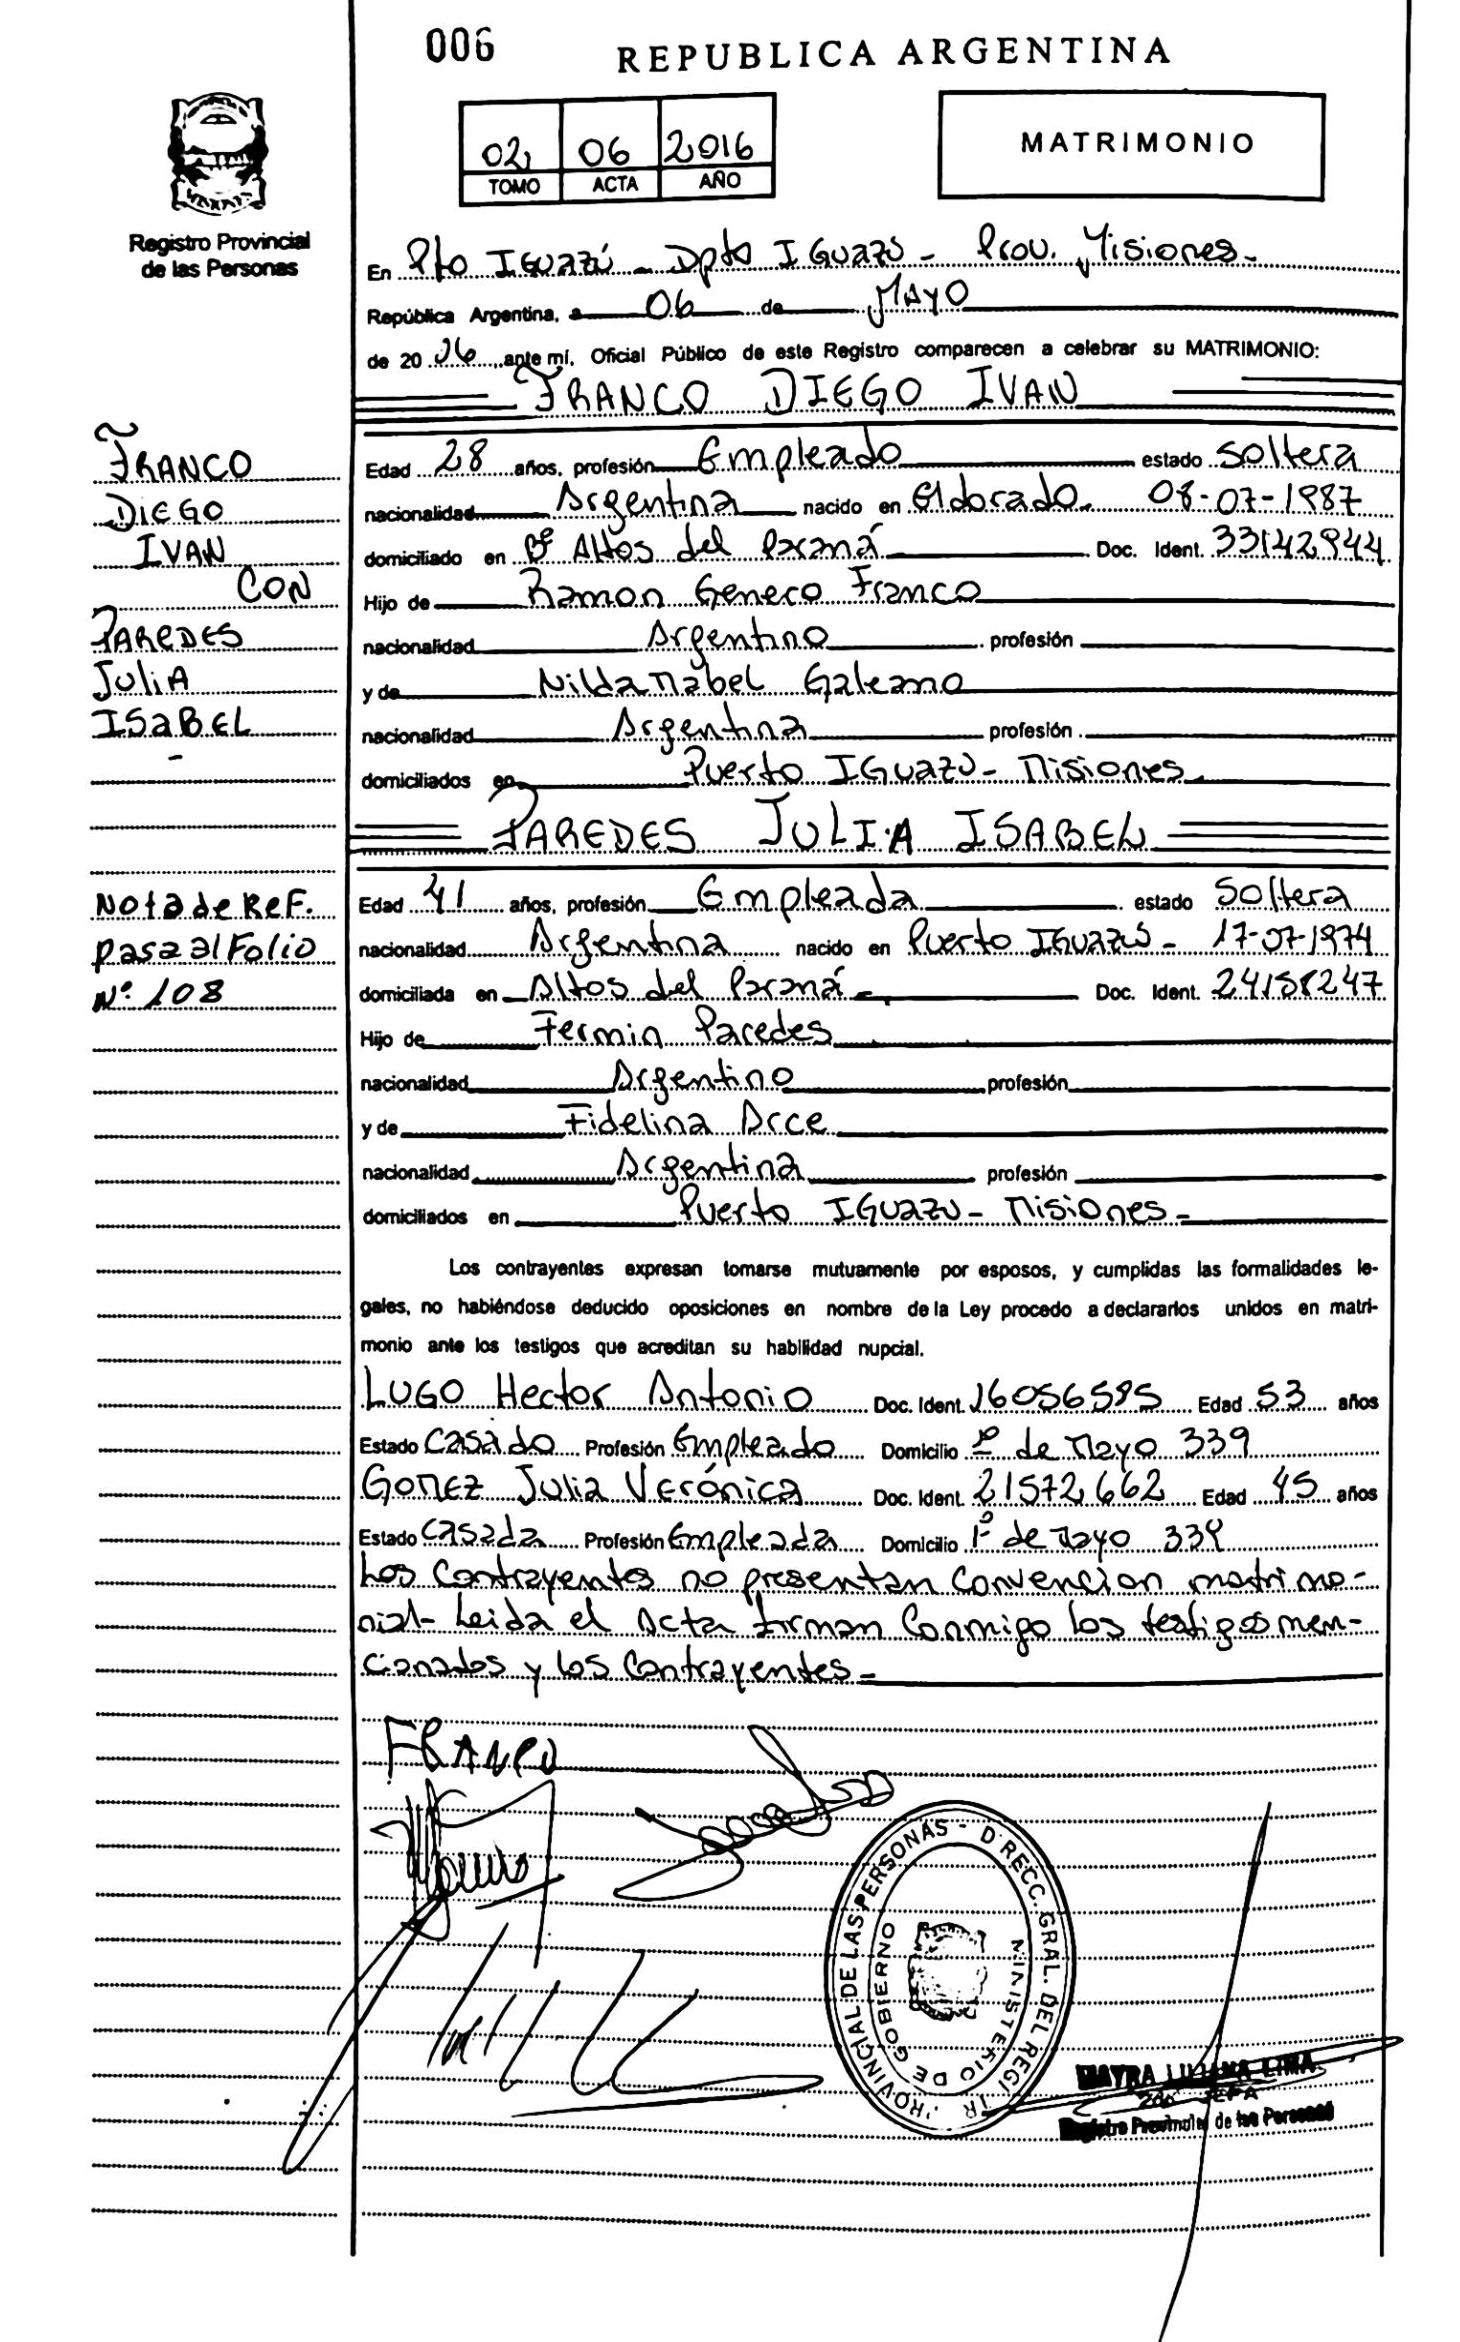 006
REPUBLICA ARGENTINA
02 06 2016
TOMO ACTA AÑO
MATRIMONIO
Registro Provincial
de las Personas
En Pto IGuazú - Dpto IGuazú - Prov. Misiones -
República Argentina, a 06 de MAYO
de 20 16 ante mí, Oficial Público de este Registro comparecen a celebrar su MATRIMONIO:
FRANCO DIEGO IVAN
FRANCO
DIEGO
IVAN
CON
PAREDES
JuliA
ISaBEL
-
Edad 28 años, profesión Empleado estado Soltera
nacionalidad Argentina nacido en Eldorado. 08-07-1987
domiciliado en Bº Altos del Paraná Doc. Ident. 33142944
Hijo de Ramon Genero Franco
nacionalidad Argentino profesión
y de Nilda Mabel Galeano
nacionalidad Argentina profesión
domiciliados en Puerto IGuazú - Misiones.
PAREDES JULIA ISABEL
Nota de ReF.
pasa al Folio
Nº 108
Edad 41 años, profesión Empleada estado Soltera
nacionalidad Argentina nacido en Puerto IGuazú - 17-07-1974
domiciliada en Altos del Paraná - Doc. Ident. 24158247
Hijo de Fermin Paredes
nacionalidad Argentino profesión
y de Fidelina Arce
nacionalidad Argentina profesión
domiciliados en Puerto IGuazú - Misiones -
Los contrayentes expresan tomarse mutuamente por esposos, y cumplidas las formalidades le-
gales, no habiéndose deducido oposiciones en nombre de la Ley procedo a declararlos unidos en matri-
monio ante los testigos que acreditan su habilidad nupcial.
LUGO Hector Antonio Doc. Ident. 16056585 Edad 53 años
Estado Casado Profesión Empleado Domicilio 1º de Mayo 339
GOMEZ Julia Verónica Doc. Ident. 21572662 Edad 45 años
Estado Casada Profesión Empleada Domicilio 1º de Mayo 339
Los Contrayentes no presentan Convencion matrimo-
nial- Leida el Acta firman Conmigo los testigos men-
cionados y los Contrayentes -
FRANCO
PROVINCIAL DE LAS PERSONAS - DIRECC. GRAL. DEL REGISTR
MINISTERIO DE GOBIERNO
MAYRA LUJANA LIMA
2do JEFA
Registro Provincial de las Personas